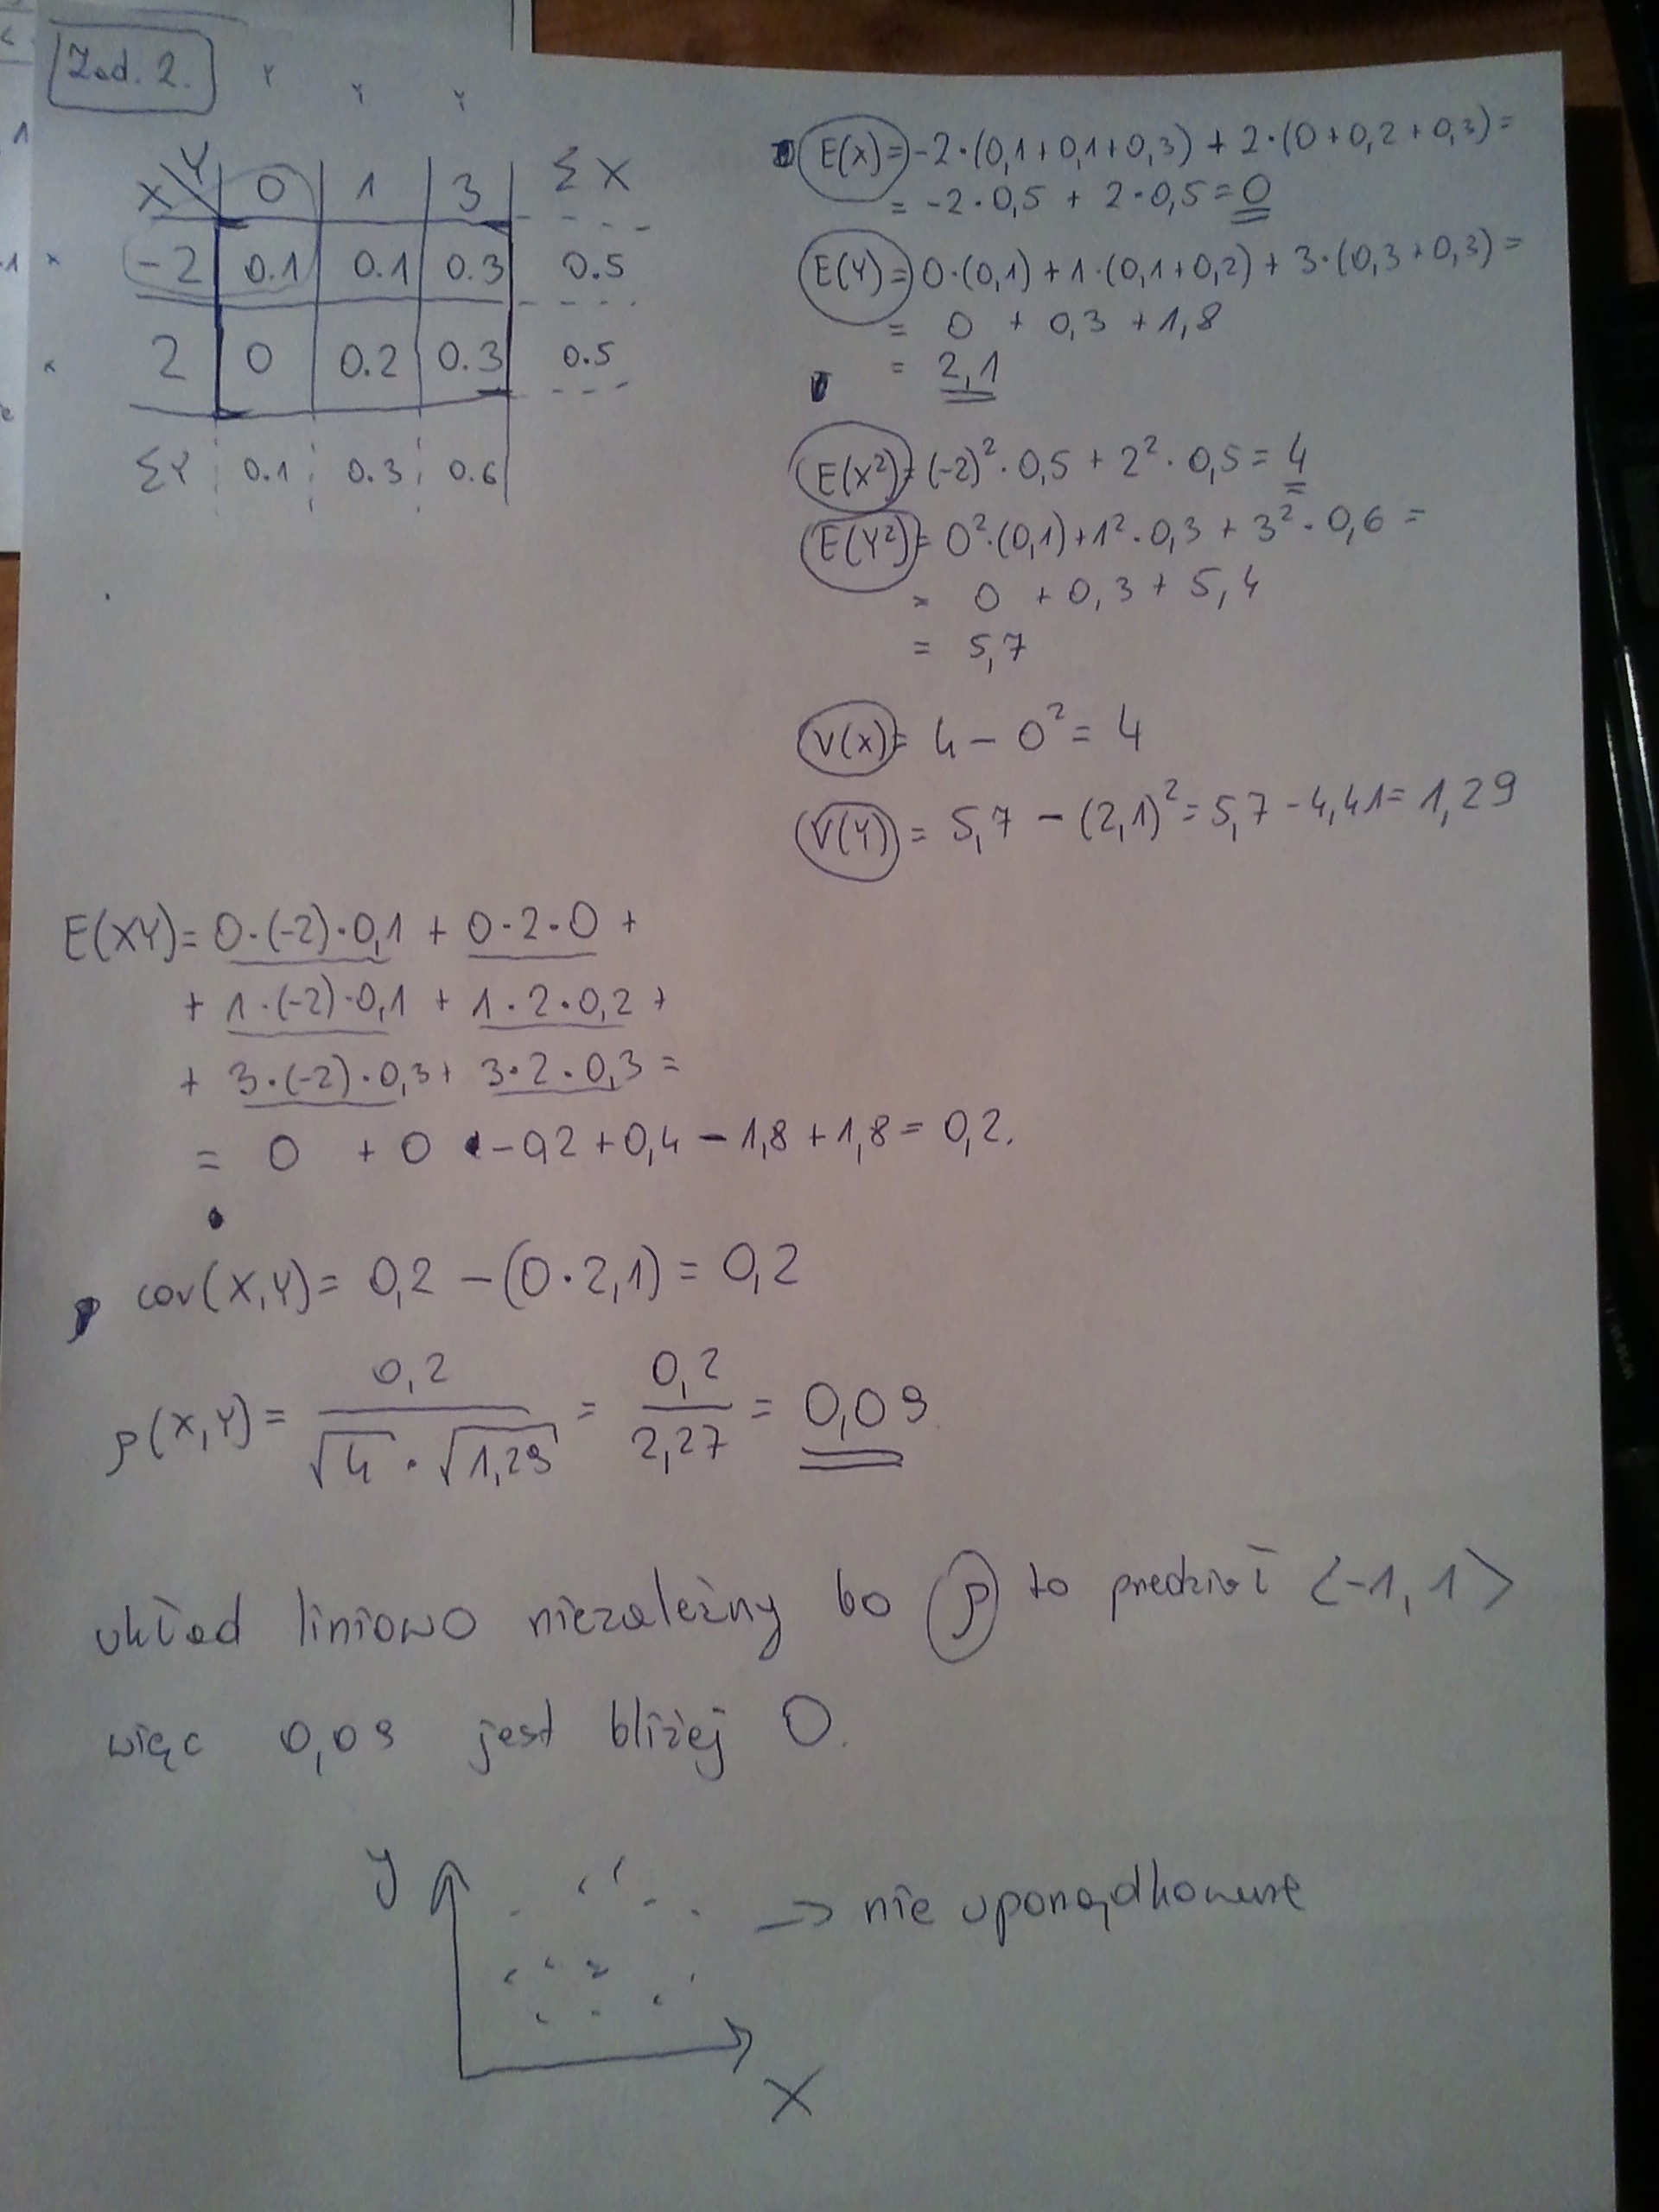 Zad. 2.
Y Y Y
X Y 0 1 3 Σ X
-2 0.1 0.1 0.3 0.5
2 0 0.2 0.3 0.5
ΣY 0.1 0.3 0.6
E(X) = -2·(0,1+0,1+0,3) + 2·(0+0,2+0,3) =
= -2·0,5 + 2·0,5 = 0
E(Y) = 0·(0,1) + 1·(0,1+0,2) + 3·(0,3+0,3) =
= 0 + 0,3 + 1,8
= 2,1
E(X²) = (-2)²·0,5 + 2²·0,5 = 4
E(Y²) = 0²·(0,1) + 1²·0,3 + 3²·0,6 =
= 0 + 0,3 + 5,4
= 5,7
V(X) = 4 - 0² = 4
V(Y) = 5,7 - (2,1)² = 5,7 - 4,41 = 1,29
E(XY) = 0·(-2)·0,1 + 0·2·0 +
+ 1·(-2)·0,1 + 1·2·0,2 +
+ 3·(-2)·0,3 + 3·2·0,3 =
= 0 + 0 - 0,2 + 0,4 - 1,8 + 1,8 = 0,2.
cov(X,Y) = 0,2 - (0·2,1) = 0,2
ρ(X,Y) = 0,2 / √4 · √1,29 = 0,2 / 2,27 = 0,09
układ liniowo niezależny bo ρ to przedział <-1,1>
więc 0,09 jest bliżej 0.
y
→ nie uporządkowane
X